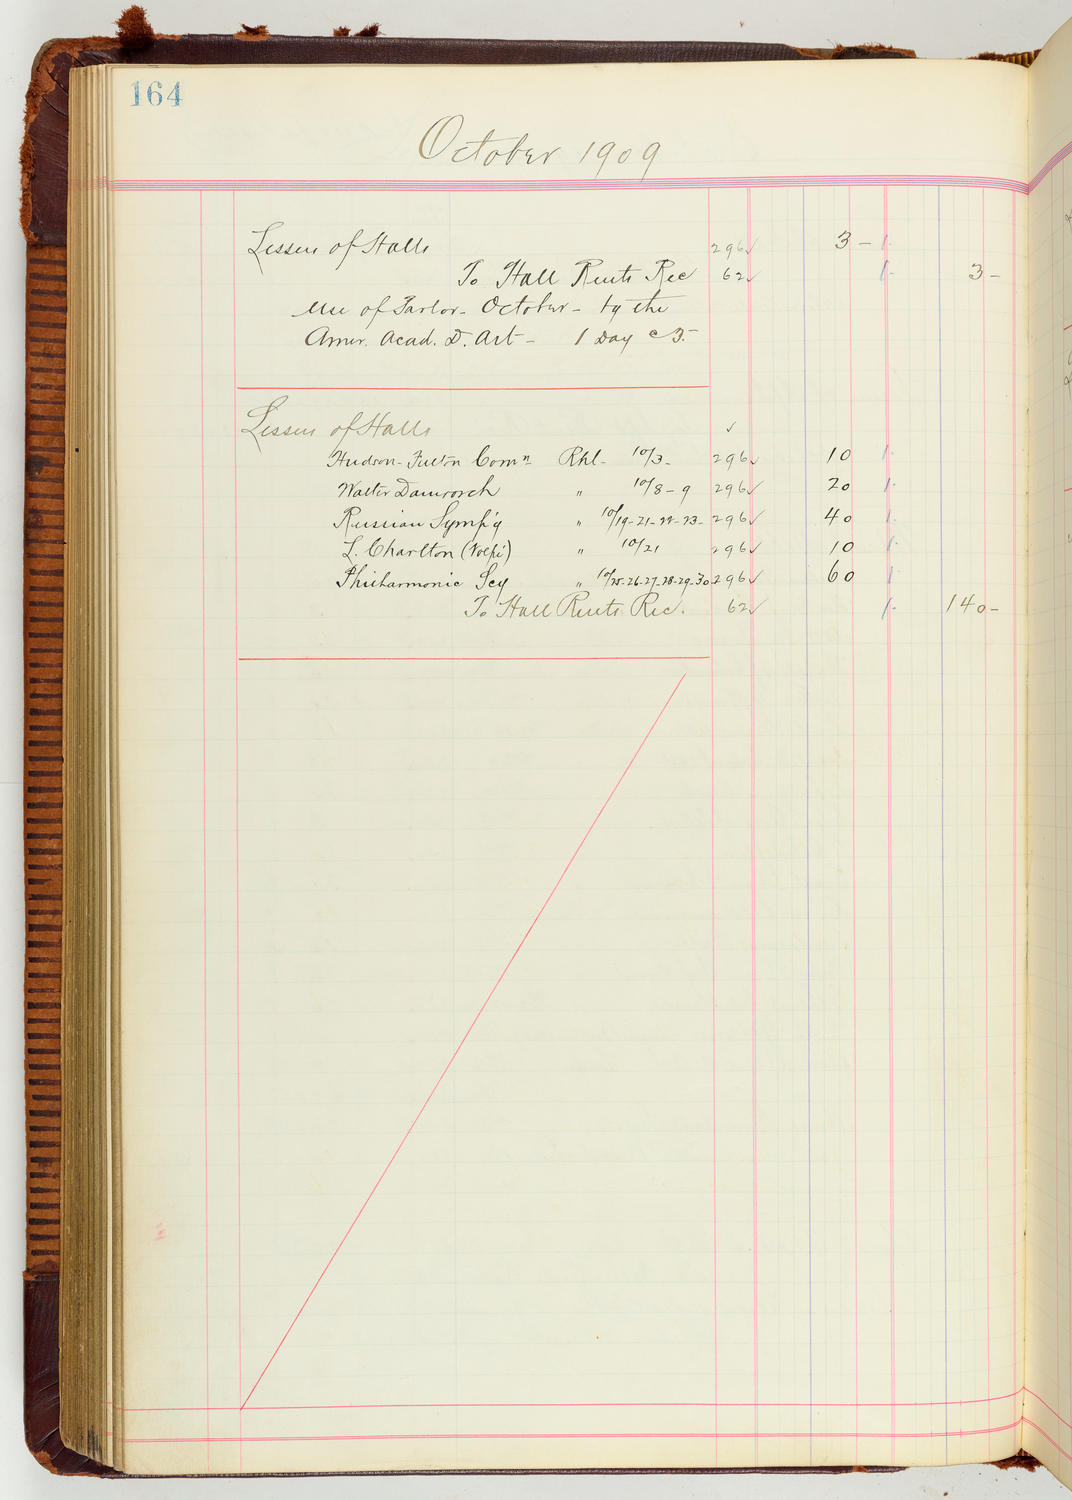 164
October 1909
Lessees of Halls 296✓ 3 –
To Hall Rents Rec 62✓ 3 –
Use of Parlor – October – by the
Amer. Acad. D. Art – 1 Day @ 3.–
Lessees of Halls ✓
Hudson-Fulton Comn Rhl. 10/3 – 296✓ 10
Walter Damrosch " 10/8 – 9 296✓ 20
Russian Symp'y " 10/19-21-22-23- 296✓ 40
L. Charlton (Volpi) " 10/21 296✓ 10
Philharmonic Scy " 10/25-26-27-28-29-30 296✓ 60
To Hall Rents Rec. 62✓ 140 –